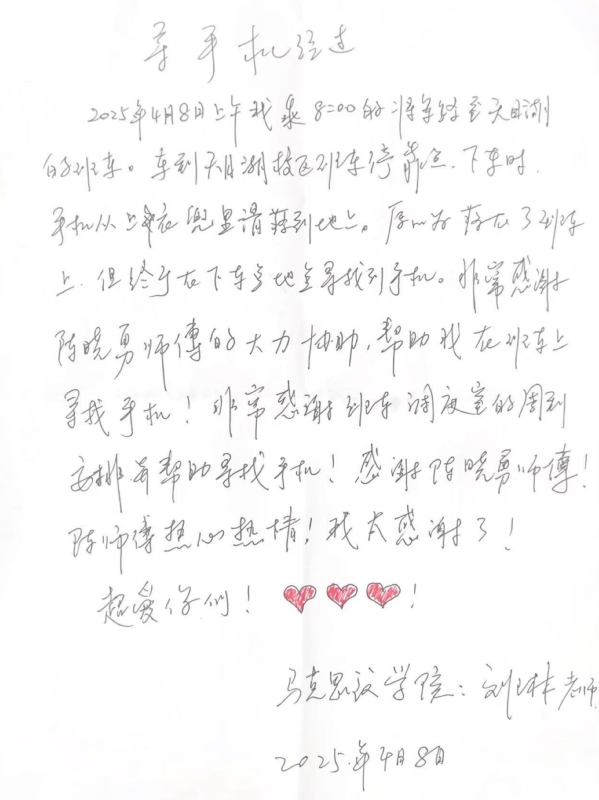 寻手机经过
2025年4月8日上午我乘8:00的将军路至天目湖
的班车。车到天目湖校区班车停靠点、下车时、
手机从上衣兜里滑落到地上。原以为落在了班车
上、但终于在下车当地点寻找到手机。非常感谢
陈晓勇师傅的大力协助,帮助我在班车上
寻找手机!非常感谢班车调度室的周到
安排并帮助寻找手机!感谢陈晓勇师傅!
陈师傅热心热情!我太感谢了!
超爱你们! ❤❤❤!
马克思主义学院:刘琳老师
2025.年4月8日